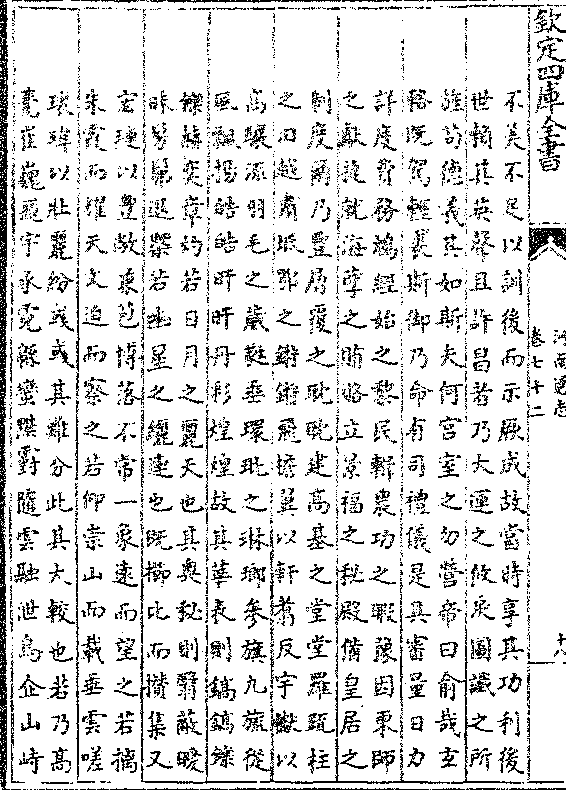 欽定四庫全書
河南通志
卷七十二
不美不足以訓後而示厥成故當時享其功利後
世賴其英聲且許昌者乃大運之攸戾圖讖之所
旌苟德義其如斯夫何宮室之勿營帝曰俞哉玄
輅既駕輕裘斯御乃命有司禮儀是具審量日力
詳度費務鳩經始之黎民輯農功之暇豫因東師
之獻捷就海孽之賄賂立景福之秘殿備皇居之
制度爾乃豐層覆之耽耽建高基之堂堂羅疏柱
之汨越肅坻鄂之鏘鏘飛櫩翼以軒翥反宇𣡹以
高驤流羽毛之葳蕤垂環玭之琳瑯參旗九旒從
風飄揚皓皓旰旰丹彩煌煌故其華表則鎬鎬鑠
鑠赫奕章灼若日月之麗天也其奧秘則翳蔽曖
昧髣髴退槩若幽星之纚連也既櫛比而攢集又
宏璉以豐敞兼苞博落不常一象遠而望之若摛
朱霞而耀天文迫而察之若仰崇山而戴垂雲嗟
瓌瑋以壯麗紛彧彧其難分此其大較也若乃高
甍崔嵬飛宇承霓緜蠻黮䨴隨雲融泄鳥企山峙